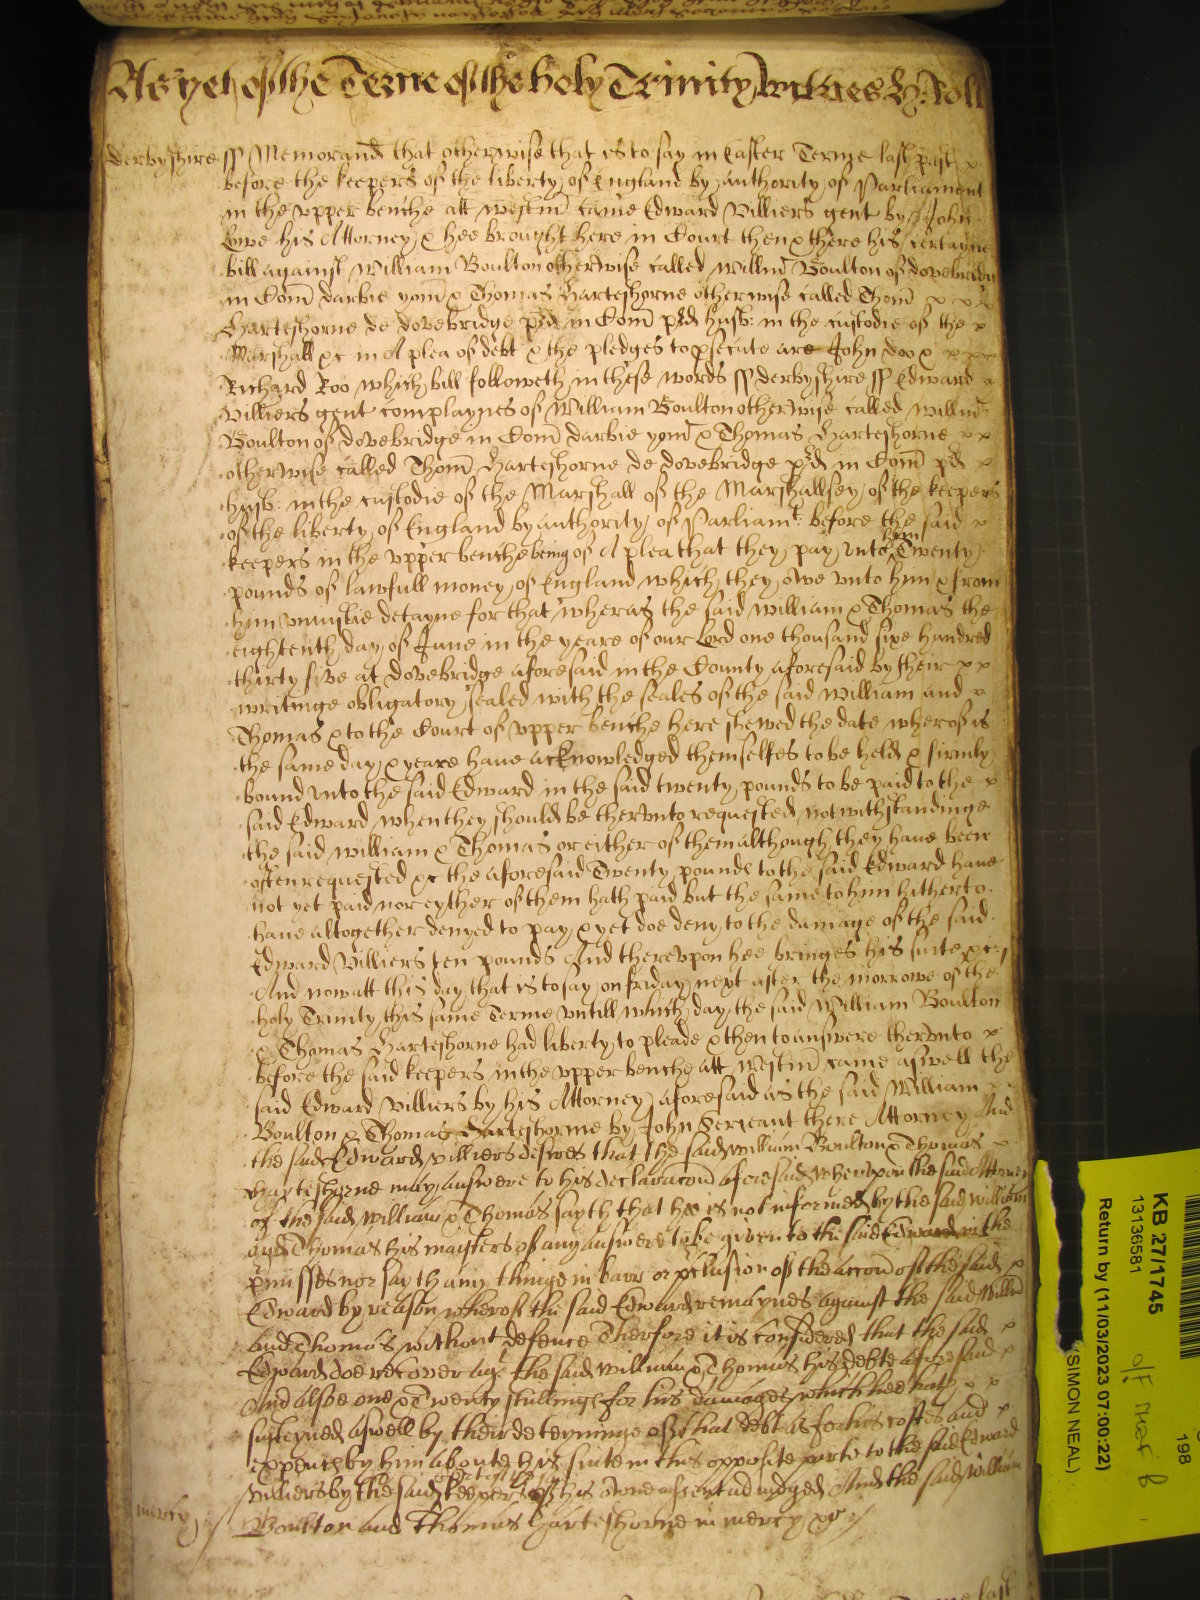 As yet of the Terme of the holy Trinity witnes H: Roll
derbyshire ss Memorand that otherwise that is to say in Easter Terme last past x
before the keepers of the liberty of England by authority of Parliament
in the upper benche att westm came Edward Villiers gent by John
Lowe his Attorney & hee brought here in Court then & there his certayne
bill against William Boulton otherwise called Willm Boulton of dovebridg
in Com darbie yom & Thomas Harteshorne otherwise called Thom x x x
Harteshorne de dovebridge pred in Com pred husb: in the custodie of the x
Marshall &c in A plea of debt & the pledges to psecute are John doo & x x x
Richard Roo which bill followeth in these words ss derbyshire ss Edward
Villiers gent complaynes of William Boulton otherwise called Willm
Boulton of dovebridge in Com darbie yom & Thomas Harteshorne x x
otherwise called Thom Harteshorne de dovebridge pred in Com pd x
husb: in the custodie of the Marshall of the Marshallsey of the keepers
of the liberty of England by authority of Parliamt: before the said x
keepers in the upper benche being of A plea that they pay unto him Twenty
pounds of lawfull money of England which they owe unto him & from
him uniustlie detayne for that wheras the said William & Thomas the
eightenth day of June in the yeare of our Lord one thousand sixe hundred
thirty five at dovebridge aforesaid in the County aforesaid by their x x
writinge obligatory sealed with the seales of the said William and x
Thomas & to the Court of upper benche here shewed the date wherof is
the same day & yeare have acknowledged themselfes to be held & firmly
bound unto the said Edward in the said twenty pounds to be paid to the x
said Edward when they should be therunto requested notwithstandinge
the said William & Thomas or either of them although they have been
often requested &c the aforesaid Twenty pounds to the said Edward have
not yet paid nor eyther of them hath paid but the same to him hitherto
have altogether denyed to pay & yet doe deny to the damage of the said
Edward Villiers ten pounds And thereupon hee bringes his suite &c:
And now att this day that is to say on friday next after the morrowe of the
holy Trinity this same Terme untill which day the said William Boulton
& Thomas Harteshorne had liberty to pleade & then to answere therunto x
before the said keepers in the upper benche att westm came aswell the
said Edward Villiers by his Attorney aforesaid as the said William
Boulton & Thomas Harteshorne by John Serieant there Attorney And
the said Edward Villiers desires that the said William Boulton & Thomas
Harteshorne may answere to his declaracon aforesaid wherupon the said Attorney
of the said William & Thomas sayth that hee is not informed by the said William
and Thomas his maysters of any answere to be given to the said Edward in the
pmisses nor sayth any thinge in barr or pclusion of the accon of the said x
Edward by reason wherof the said Edward remaynes against the said Willm
and Thomas without defence Therfore it is considered that the said x
Edward doe recover agt the said William & Thomas his debte aforesaid x
And alsoe one & Twenty shillings for his damages which hee hath x x
susteyned aswell by the deteyninge of that debt as for his costes and x
expences by him aboute his suite in this opposite parte to the said Edward
Villiers by the said keepers of his owne assent adiudged And the said William
mercy Boulton and Thomas Harteshorne in mercy &c
KB 27/1745
13136581
Return by (11/03/2023 07:00:22)
(SIMON NEAL)
198